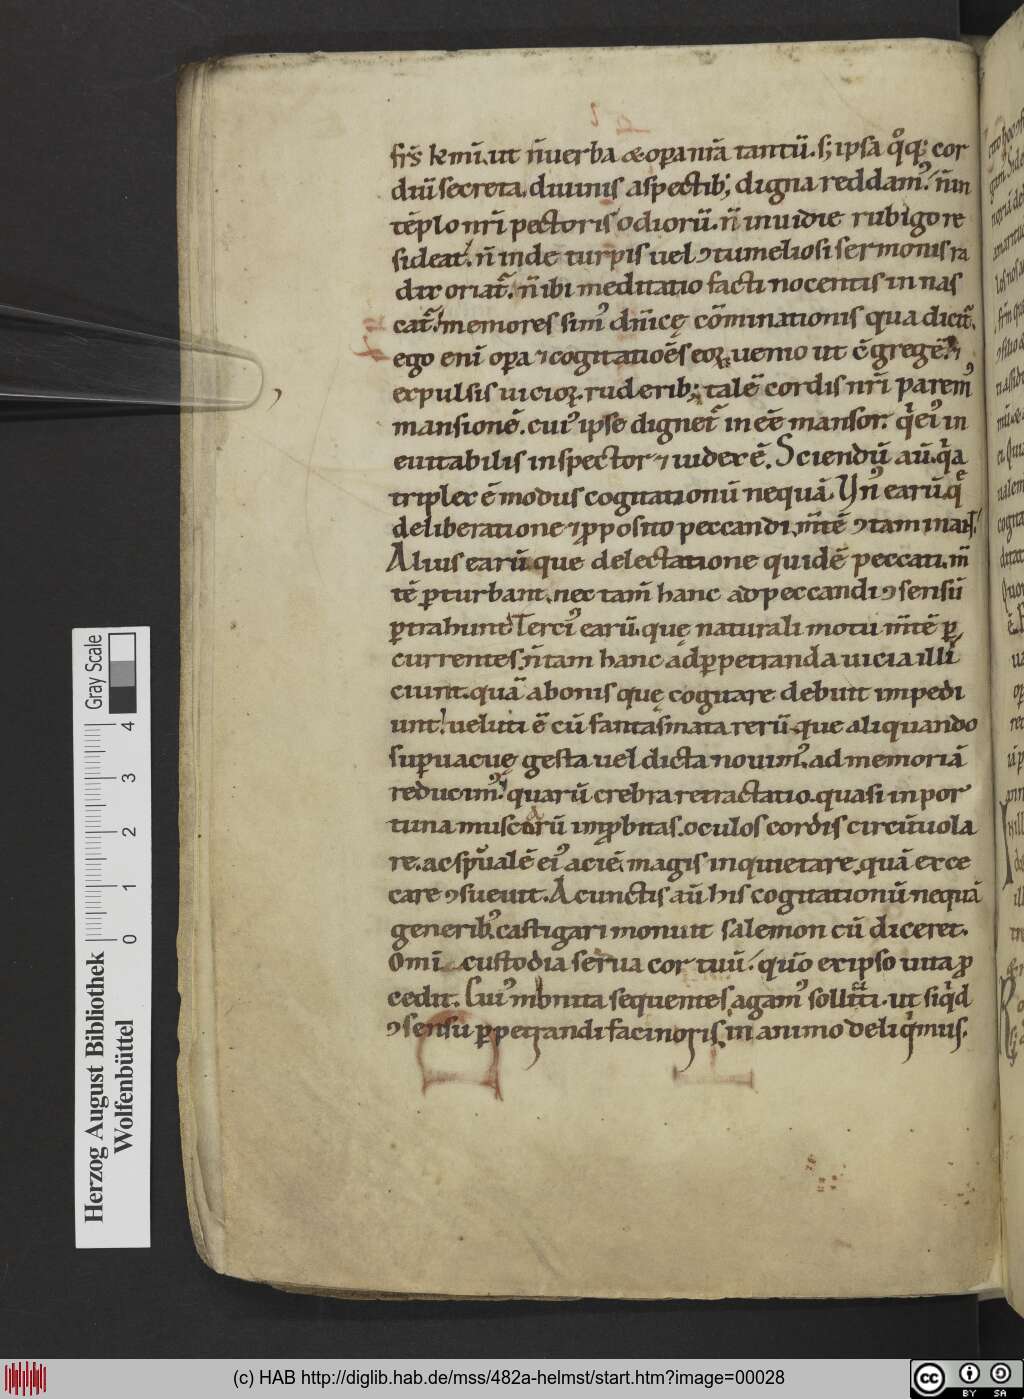 frs̄ kmī. ut n̄ uerba & opa nr̄a tantū. s; ipsa qͦq; cor
diū secreta. diuinis aspectib; digna reddamꝰ. n̄ in
tēplo nr̄i pectoris odiorū. n̄ inuidie rubigo re
sideat. n̄ inde turpis uel ꝯtumeliosi sermonis ra
dix oriat᷑. n̄ ibi meditatio facti nocentis in nas
cat᷑. memores simꝰ dn̄icę cōminationis qua dicit᷑.
ego enī opa ⁊ cogitatioēs eoꝝ uenio ut ꝯgregē. ⁊
expulsis uicioꝝ ruderib; talē cordis nr̄i paremꝰ
mansionē. cuiꝰ ipse dignet᷑ in eē mansor. qͥ eiꝰ in
euitabilis inspector ⁊ iudex ē. Sciendū aū. qͥa
triplex ē modus cogitationū nequā. Vnꝰ earū. q̄
deliberatione ⁊ ꝓposito peccandi. m̄tē ꝯtaminat.
Alius earū que delectatione quidē peccati. m̄
tē ꝑturbant. nec tam̄ hanc ad peccandi ꝯsensū
ꝑtrahunt. Terciꝰ earū. quę naturali motu m̄tē ꝑ
currentes. n̄ tam hanc ad ꝑpetranda uicia illi
ciunt. quā a bonis quę cogitare debuit impedi
unt. ueluti ē cū fantasmata rerū que aliquando
supuacuę gesta uel dicta nouimꝰ. ad memoriā
reducimꝰ. quarū crebra retractatio. quasi inpor
tuna muscarū imꝓbitas. oculos cordis circūuola
re. ac sp̄ualē eiꝰ aciē. magis inquietare quā exce
care ꝯsueuit. A cunctis aū his cogitationū nequā
generibꝰ castigari monuit salemon cū diceret.
Omī custodia serua cor tuū. quō ex ipso uita ꝓ
cedit. Cuiꝰ monita sequentes. agamꝰ sollicit. ut siqͥd
ꝯsensu ꝑpetrandi facinoris. in animo deliqͥmus.
Gray Scale
0 1 2 3 4
Herzog August Bibliothek
Wolfenbüttel
(c) HAB http://diglib.hab.de/mss/482a-helmst/start.htm?image=00028
cc BY SA